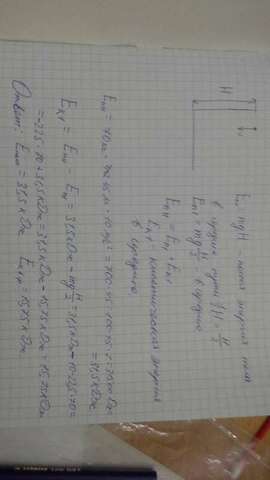 H
Eп = mgH - полная энергия тела
в середине пути 1/H = H/2
Eп1 = mg H/2 - в середине
Eпн = Eп1 + Eк1
Eк1 - кинетическая энергия
в середине.
Eпн = 70кг · 45м · 10 м/с² = 700·45 = 100·45·7 = 31500 Дж
= 31,5 кДж
Eк1 = Eпн - Eп1 = 31,5кДж - mg H/2 = 31,5кДж - 10·22,5·70 =
= -225·70 + 31,5кДж = 31,5кДж - 15,75кДж = 15,75кДж
Ответ: = 31,5 кДж = 15,75 кДж